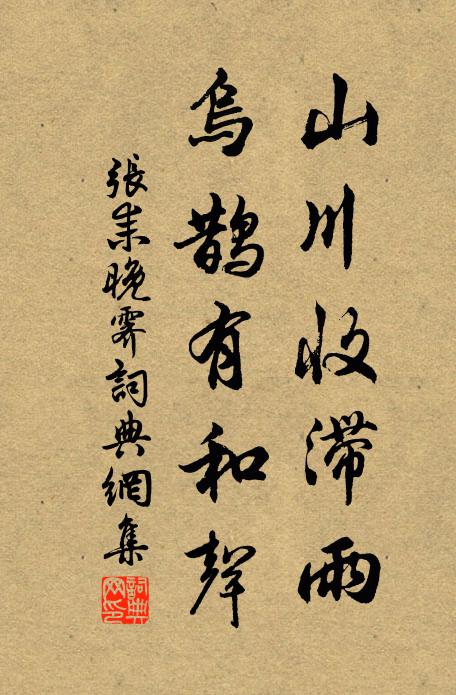 山川收滞雨
烏鵲有和聲
張耒晚霽詞典網集
詞典网印